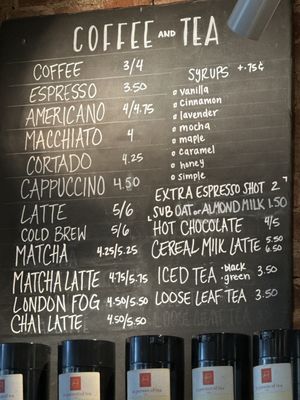 COFFEE AND TEA
COFFEE 3/4
ESPRESSO 3.50
AMERICANO 4/4.75
MACCHIATO 4
CORTADO 4.25
CAPPUCCINO 4.50
LATTE 5/6
COLD BREW 5/6
MATCHA 4.25/5.25
MATCHA LATTE 4.75/5.75
LONDON FOG 4.50/5.50
CHAI LATTE 4.50/5.50
SYRUPS +.75¢
vanilla
Cinnamon
lavender
mocha
maple
caramel
honey
simple
EXTRA ESPRESSO SHOT 2
SUB OAT or ALMOND MILK 1.50
HOT CHOCOLATE 4/5
CEREAL MILK LATTE 5.50
6.50
ICED TEA: black
green 3.50
LOOSE LEAF TEA 3.50
LOOSE LEAF